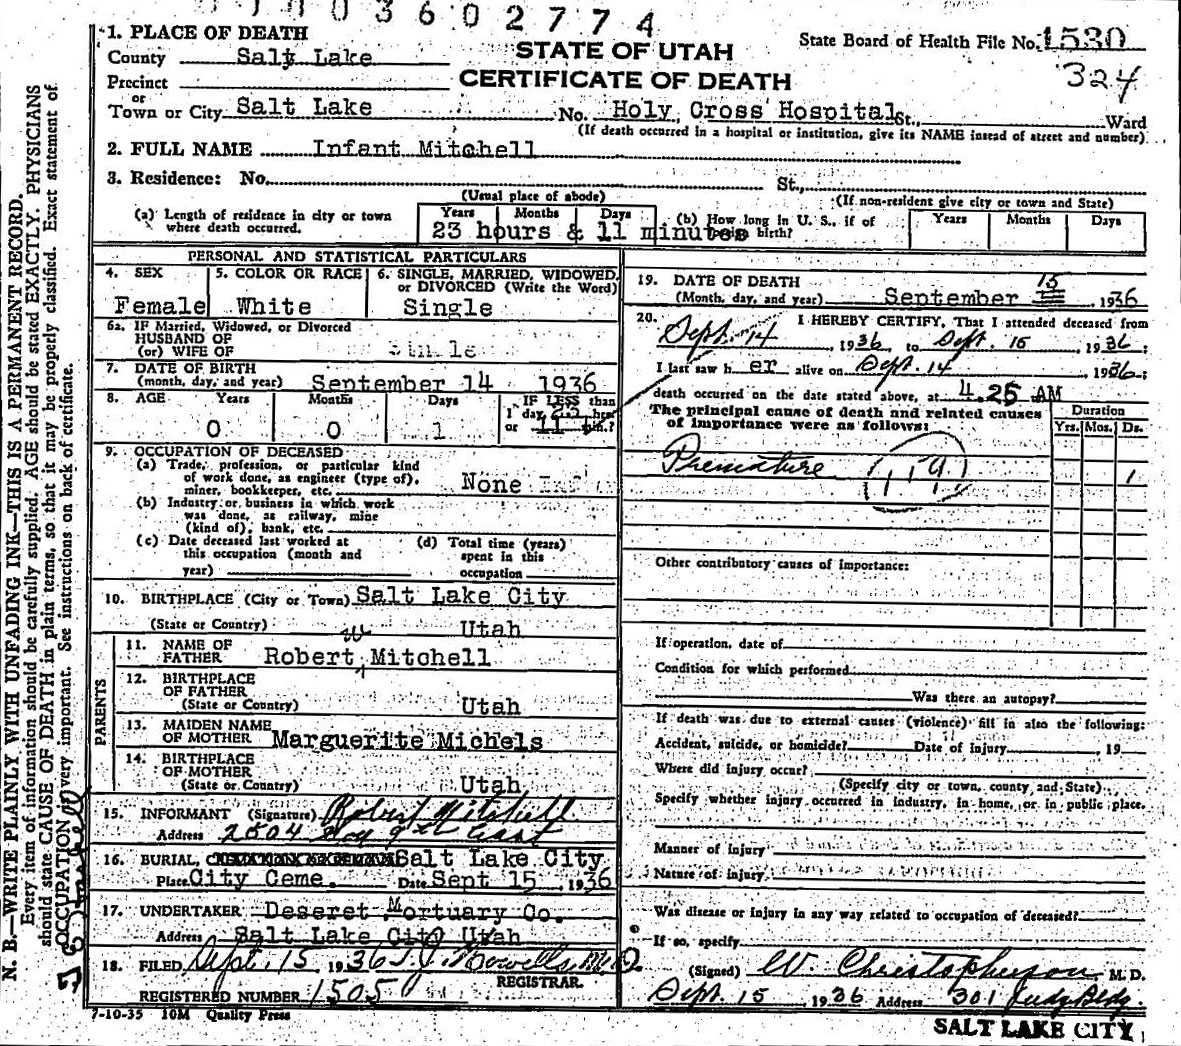 0 1 0 0 3 6 0 2 7 7 4
STATE OF UTAH
CERTIFICATE OF DEATH
State Board of Health File No. 1530
324
1. PLACE OF DEATH
County Salt Lake
Precinct
or
Town or City Salt Lake No. Holy Cross Hospital St., Ward
(If death occurred in a hospital or institution, give its NAME instead of street and number)
2. FULL NAME Infant Mitchell
3. Residence: No. St.,
(Usual place of abode) (If non-resident give city or town and State)
(a) Length of residence in city or town where death occurred. Years Months Days
23 hours & 11 minutes
(b) How long in U. S., if of birth? Years Months Days
PERSONAL AND STATISTICAL PARTICULARS
4. SEX 5. COLOR OR RACE 6. SINGLE, MARRIED, WIDOWED,
or DIVORCED (Write the Word)
Female White Single
6a. IF Married, Widowed, or Divorced
HUSBAND OF
(or) WIFE OF
7. DATE OF BIRTH
(month, day, and year) September 14 1936
8. AGE Years Months Days IF LESS than
1 day, 23 hrs.
or 11 min.?
0 0 1
9. OCCUPATION OF DECEASED
(a) Trade, profession, or particular kind
of work done, as engineer (type of),
miner, bookkeeper, etc. None
(b) Industry or business in which work
was done, as railway, mine
(kind of), bank, etc.
(c) Date deceased last worked at
this occupation (month and
year)
(d) Total time (years)
spent in this
occupation
10. BIRTHPLACE (City or Town) Salt Lake City
(State or Country) Utah
11. NAME OF
FATHER Robert W Mitchell
12. BIRTHPLACE
OF FATHER
(State or Country) Utah
PARENTS
13. MAIDEN NAME
OF MOTHER Marguerite Michels
14. BIRTHPLACE
OF MOTHER
(State or Country) Utah
15. INFORMANT (Signature) Robert Mitchell
Address 2504 So 9th East
16. BURIAL, Salt Lake City
Place City Ceme. Date Sept 15, 1936
17. UNDERTAKER Deseret Mortuary Co.
Address Salt Lake City Utah
18. FILED Sept. 15 1936 T. J. Howells, M.D.
REGISTRAR.
REGISTERED NUMBER 1505
7-10-35 10M Quality Press
19. DATE OF DEATH
(Month, day, and year) September 15, 1936
20. I HEREBY CERTIFY, That I attended deceased from
Sept. 14, 1936, to Sept. 15, 1936;
I last saw h er alive on Sept. 14 1936;
death occurred on the date stated above, at 4.25 AM
The principal cause of death and related causes
of importance were as follows:
Duration
Yrs. Mos. Ds.
Premature 119 1
Other contributory causes of importance:
If operation, date of
Condition for which performed
Was there an autopsy?
If death was due to external causes (violence) fill in also the following:
Accident, suicide, or homicide? Date of injury , 19
Where did injury occur?
(Specify city or town, county, and State)
Specify whether injury occurred in industry, in home, or in public place.
Manner of injury
Nature of injury
Was disease or injury in any way related to occupation of deceased?
If so, specify
(Signed) W Christopherson M. D.
Sept. 15, 1936 Address 301 Judg Bldg.
SALT LAKE CITY
N. B.—WRITE PLAINLY WITH UNFADING INK—THIS IS A PERMANENT RECORD.
Every item of information should be carefully supplied. AGE should be stated EXACTLY. PHYSICIANS
should state CAUSE OF DEATH in plain terms, so that it may be properly classified. Exact statement of
OCCUPATION is very important. See instructions on back of certificate.